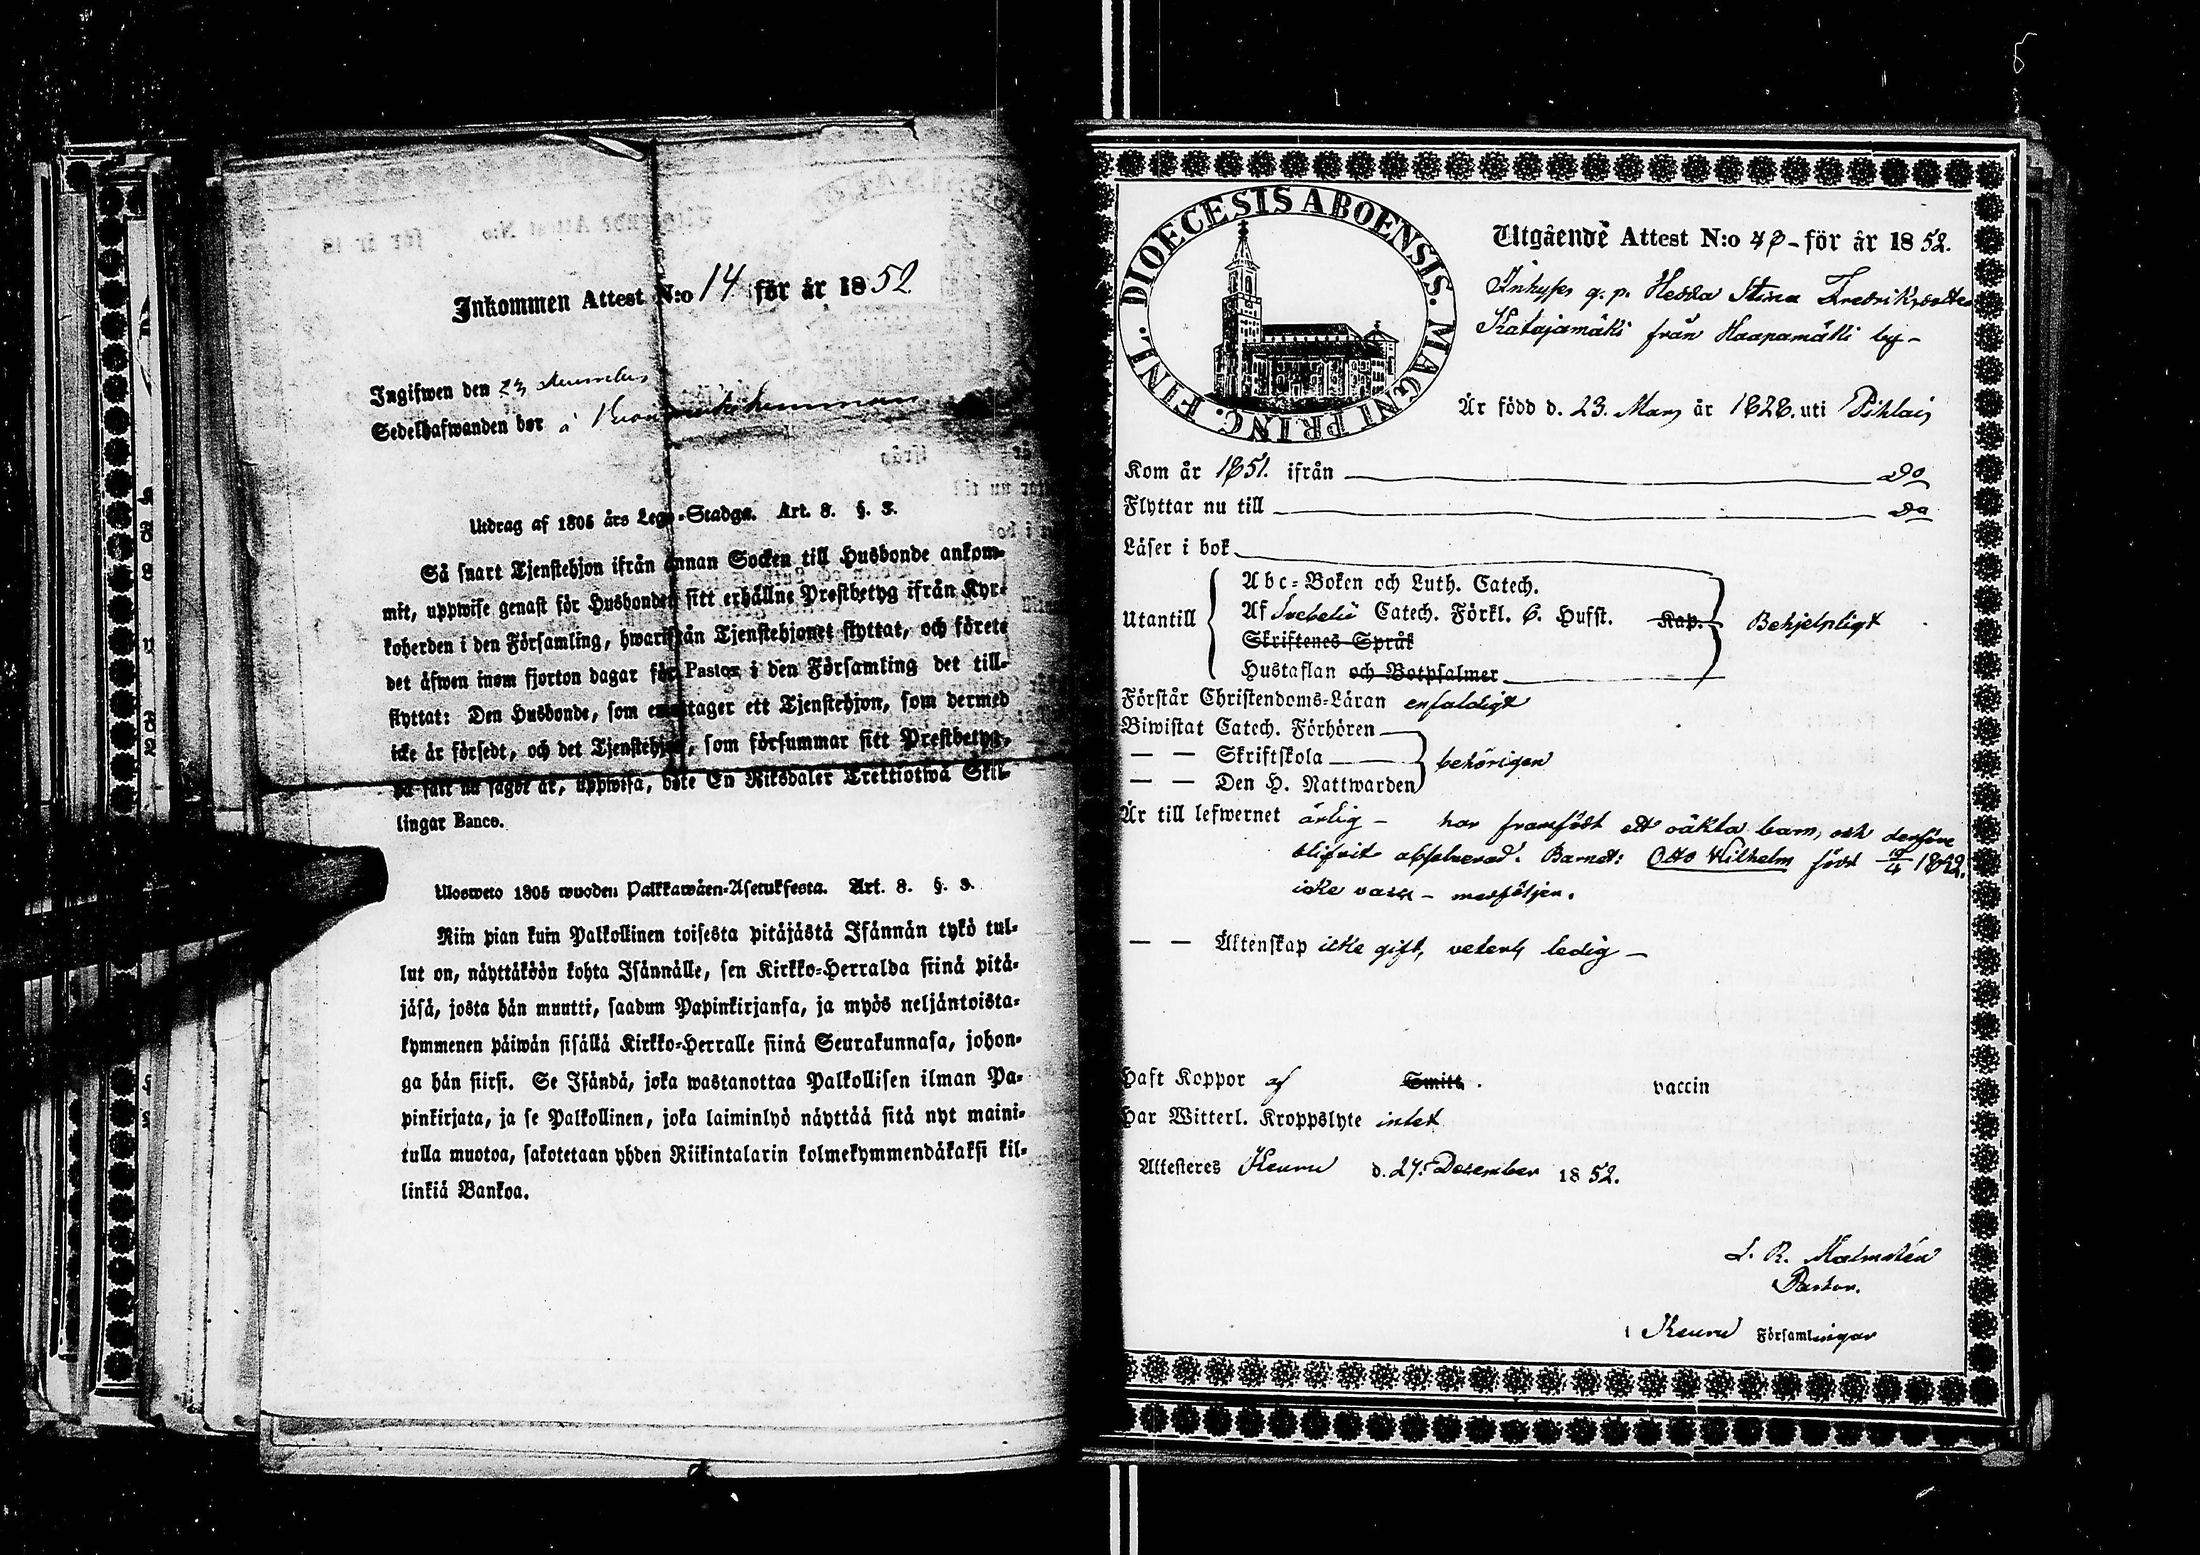 Inkommen Attest N:o 14 för år 1852
Ingifwen den 23
Sedelhafwanden bor å
Utdrag af 1805 års Lego-Stadga. Art. 8. §. 3.
Så snart Tjenstehjon ifrån annan Socken till Husbonde ankom-
mit, uppwise genast för Husbonden sitt erhållne Prestbetyg ifrån Kyr-
koherden i den Församling, hwarifrån Tjenstehjonet flyttat, och förete
det äfwen inom fjorton dagar för Pastor i den Församling det till-
flyttat: Den Husbonde, som emottager ett Tjenstehjon, som dermed
icke är försedt, och det Tjenstehjon, som försummar sitt Prestbetyg,
på sätt nu sagdt är, uppwisa, böte En Riksdaler Trettiotwå Skil-
lingar Banco.
Ulosweto 1805 wuoden Palkkawäen-Asetuksesta. Art. 8. §. 3.
Niin pian kuin Palkollinen toisesta pitäjästä Isännän tykö tul-
lut on, näyttäköön kohta Isännälle, sen Kirkko-Herralda siinä pitä-
jäsä, josta hän muutti, saadun Papinkirjansa, ja myös neljäntoista-
kymmenen päiwän sisällä Kirkko-Herralle siinä Seurakunnasa, johon-
ga hän siirsi. Se Isändä, joka wastanottaa Palkollisen ilman Pa-
pinkirjata, ja se Palkollinen, joka laiminlyö näyttää sitä nyt maini-
tulla muotoa, sakotetaan yhden Riikintalarin kolmekymmendäkaksi kil-
linkiä Bankoa.
DIOECESIS ABOENSIS. MAGNI PRINC. FINL.
Utgående Attest N:o för år 1852.
Inhyses q. p. Hedda Stina Fredriksdotter
Katajamäki från Haapamäki by -
Är född d. 23. Mars år 1828. uti Pihlais
Kom år 1851. ifrån Do
Flyttar nu till Do
Läser i bok
Abc-Boken och Luth. Catech.
Utantill Af Svebelii Catech. Förkl. 6. Hufst. Kap. Behjelpligt
Skriftenes Språk
Hustaflan och Botpsalmer
Förstår Christendoms-Läran enfaldigt
Biwistat Catech. Förhören
— — Skriftskola behörigen
— — Den H. Nattwarden
Är till lefwernet ärlig - har framfödt ett oäkta barn, och derföre
blifvit absolverad. Barnet: Otto Wilhelm född 19/4 1852.
icke - medföljer.
— — Äktenskap icke gift, veterl, ledig -
Haft Koppor af Smitt. vaccin
Har Witterl. Kroppslyte intet
Attesteres Keuru d. 27. December 1852.
L. R. Malmstén
Pastor.
i Keuru Församlingar